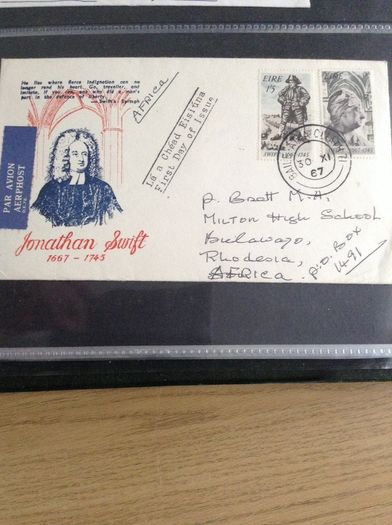 He lies where fierce Indignation can no
longer rend his heart. Go, traveller, and
imitate, if you can, one who did a man's
part in the defence of liberty.
—Swift's Epitaph
AFRICA
Lá a Chéad Eisiúna
First Day of Issue
PAR AVION
AERPHOST
Jonathan Swift
1667 - 1745
EIRE
15
SWIFT
1667-1745
BAILE ÁTHA CLIATH
30 XI
67
P. Brett M.A.
MILTON HIGH SCHOOL
Bulawayo,
Rhodesia,
AFRICA.
P.O. BOX
1491